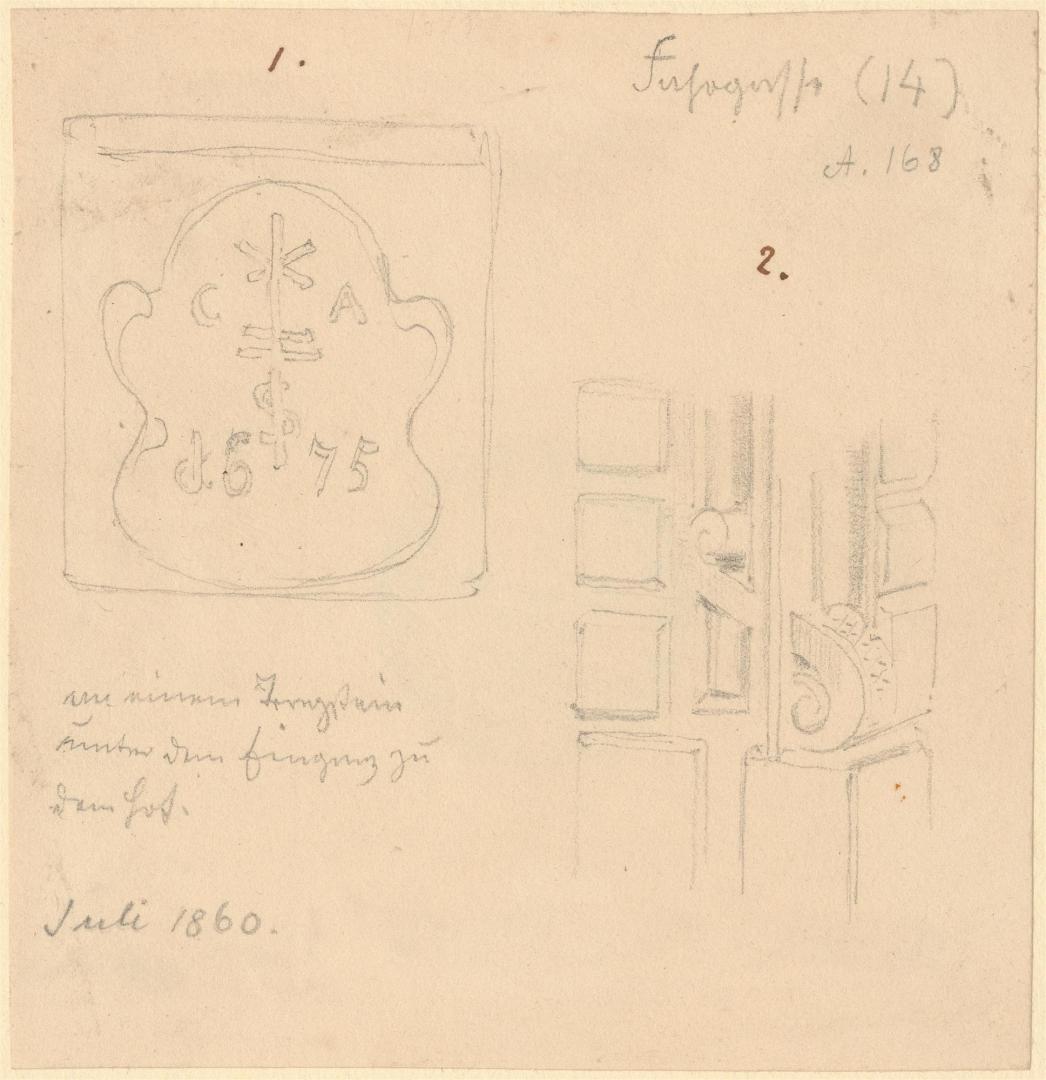 1.
Fahrgasse (14)
A. 168
2.
C A
S
1675
an einem Tragstein
unter dem Eingang zu
dem Hof.
Juli 1860.